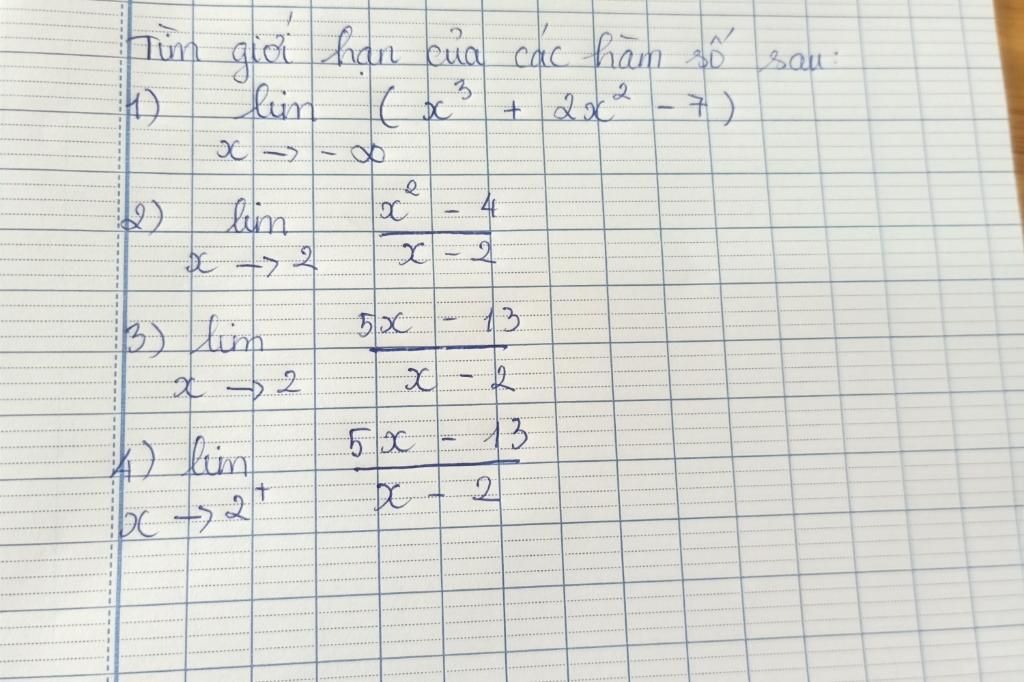 Tìm giới hạn của các hàm số sau:
1) lim (x³ + 2x² - 7)
x → -∞
2) lim x² - 4
x → 2 x - 2
3) lim 5x - 13
x → 2 x - 2
4) lim 5x - 13
x → 2⁺ x - 2